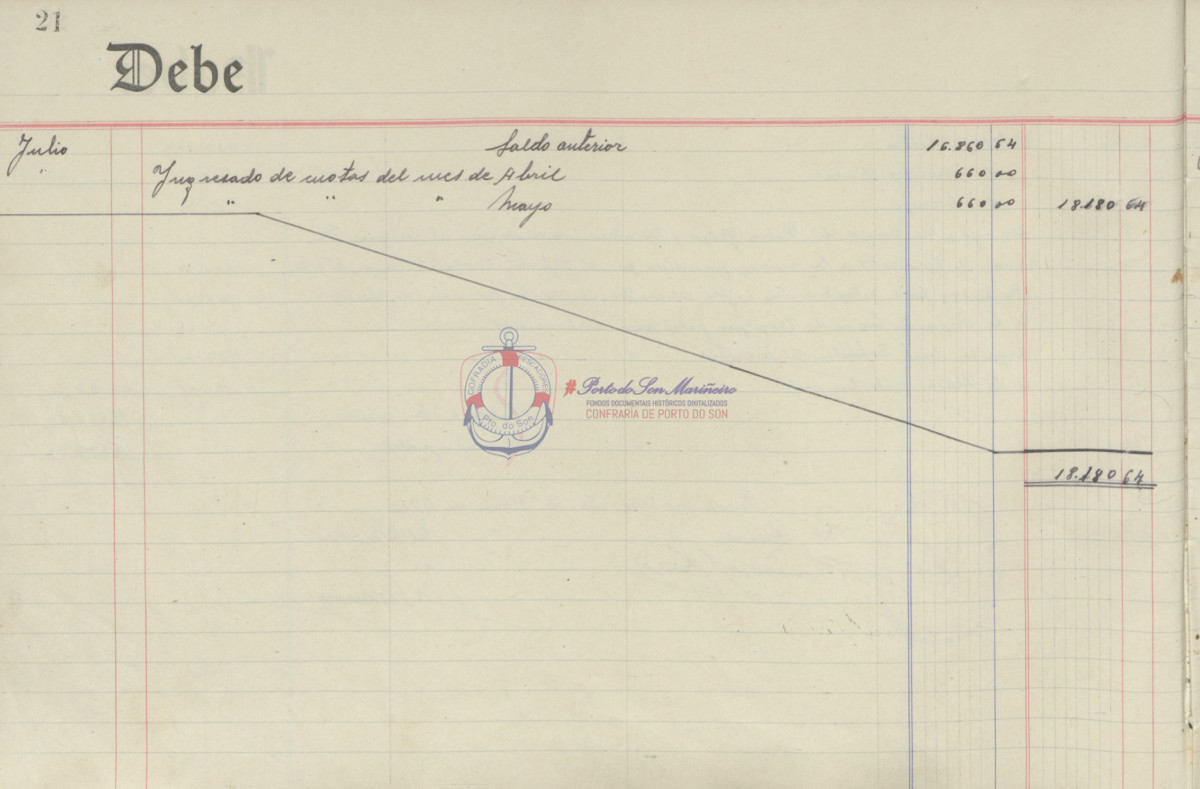 21
Debe
Julio Saldo anterior 16.860 64
" Ingresado de cuotas del mes de Abril 660 00
" " " Mayo 660 00 18.180 64
18.180 64
COFRADIA PESCADORES
Pto. do Son
#Porto do Son Mariñeiro
FONDOS DOCUMENTAIS HISTÓRICOS DIXITALIZADOS
CONFRARÍA DE PORTO DO SON